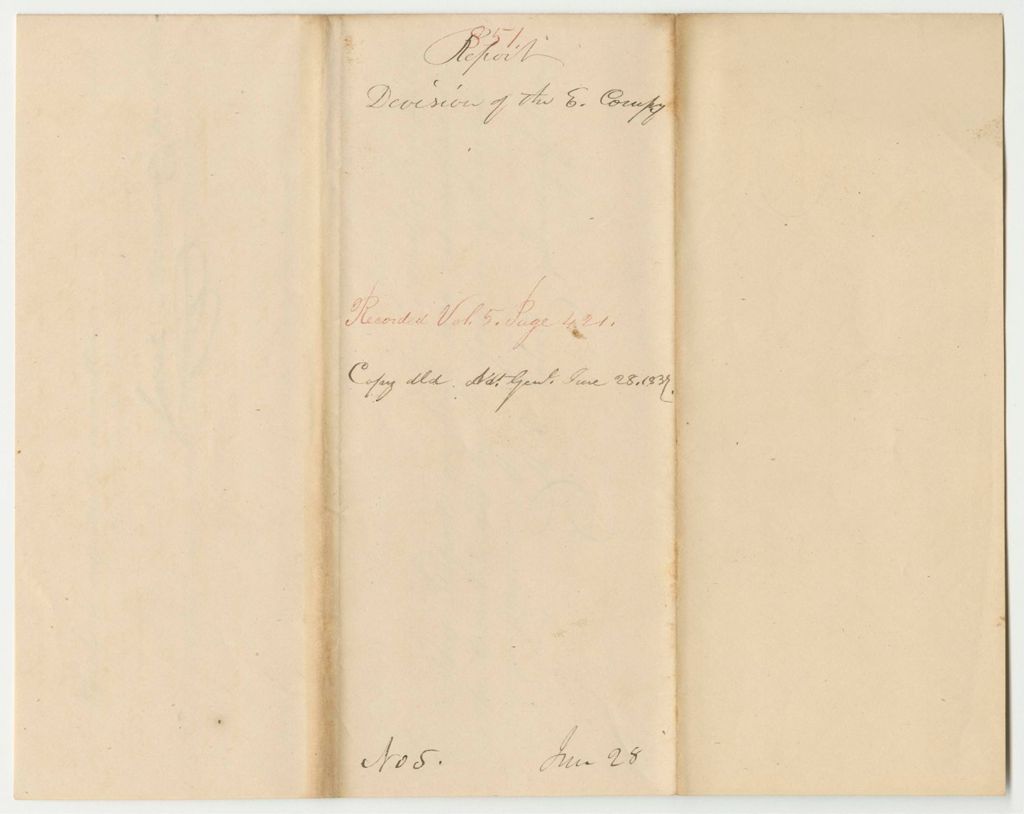 851.
Report
Division of the E. Compy
Recorded Vol. 5. Page 421.
Copy dld. Adt. Genl. June 28. 1837.
No 5. June 28